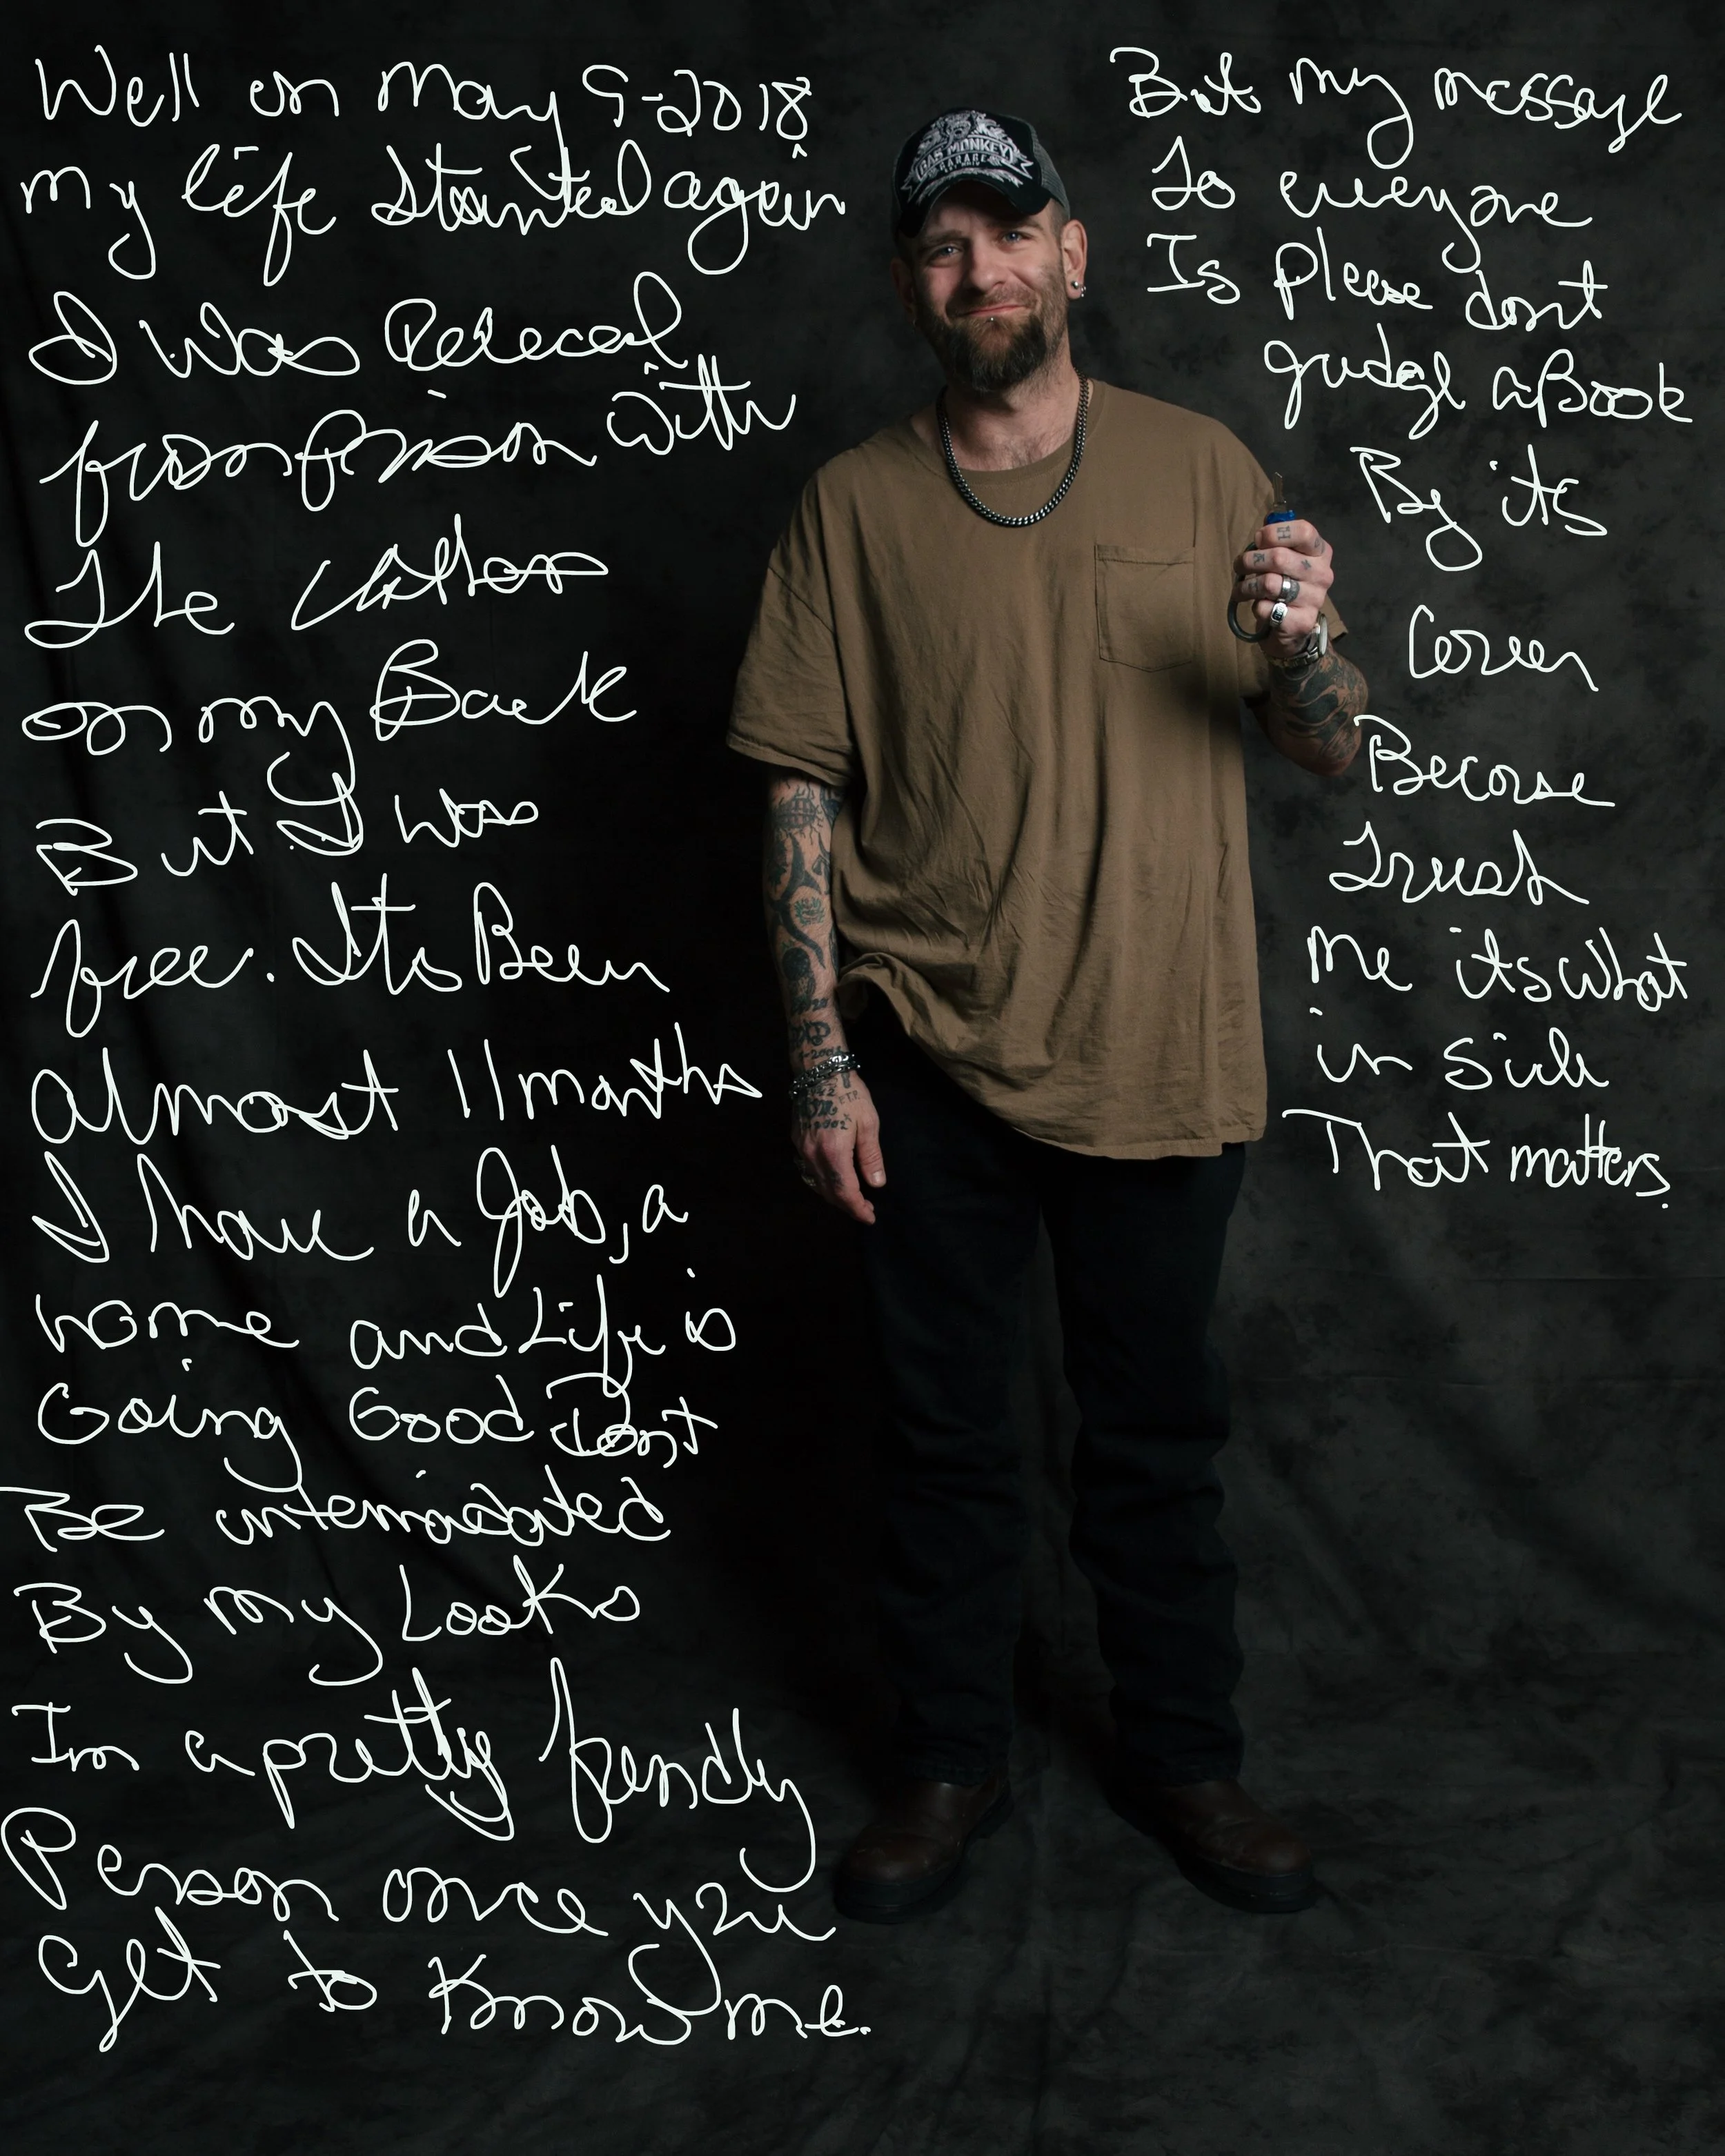 Well on May 9-2018
my life started again
I was Releced
from prison with
the clothes
on my Back
But I was
free. Its Been
almost 11 months
I have a Job, a
home and Life is
Going Good Dont
Be intemadated
By my Looks
Im a pretty frendly
Person once you
get to Know me.
But my message
to everyone
Is please dont
gudge a Book
By its
Cover
Because
trust
me its what
in side
That matters.
GAS MONKEY
GARAGE